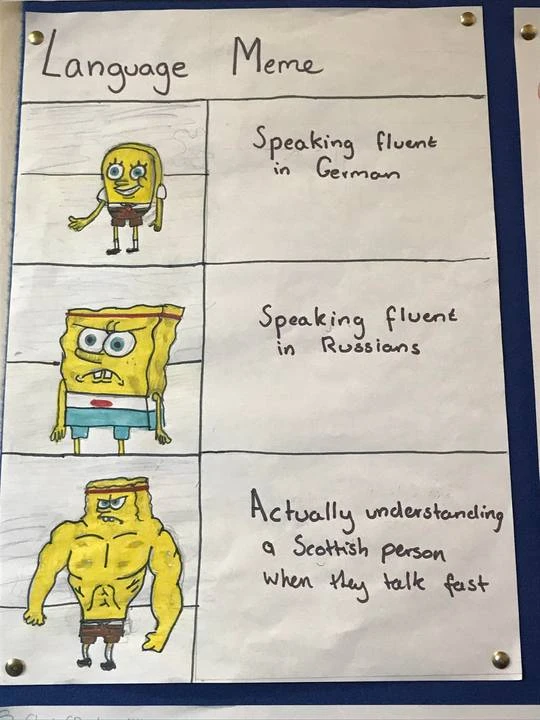 Language Meme
Speaking fluent
in German
Speaking fluent
in Russians
Actually understanding
a Scottish person
when they talk fast